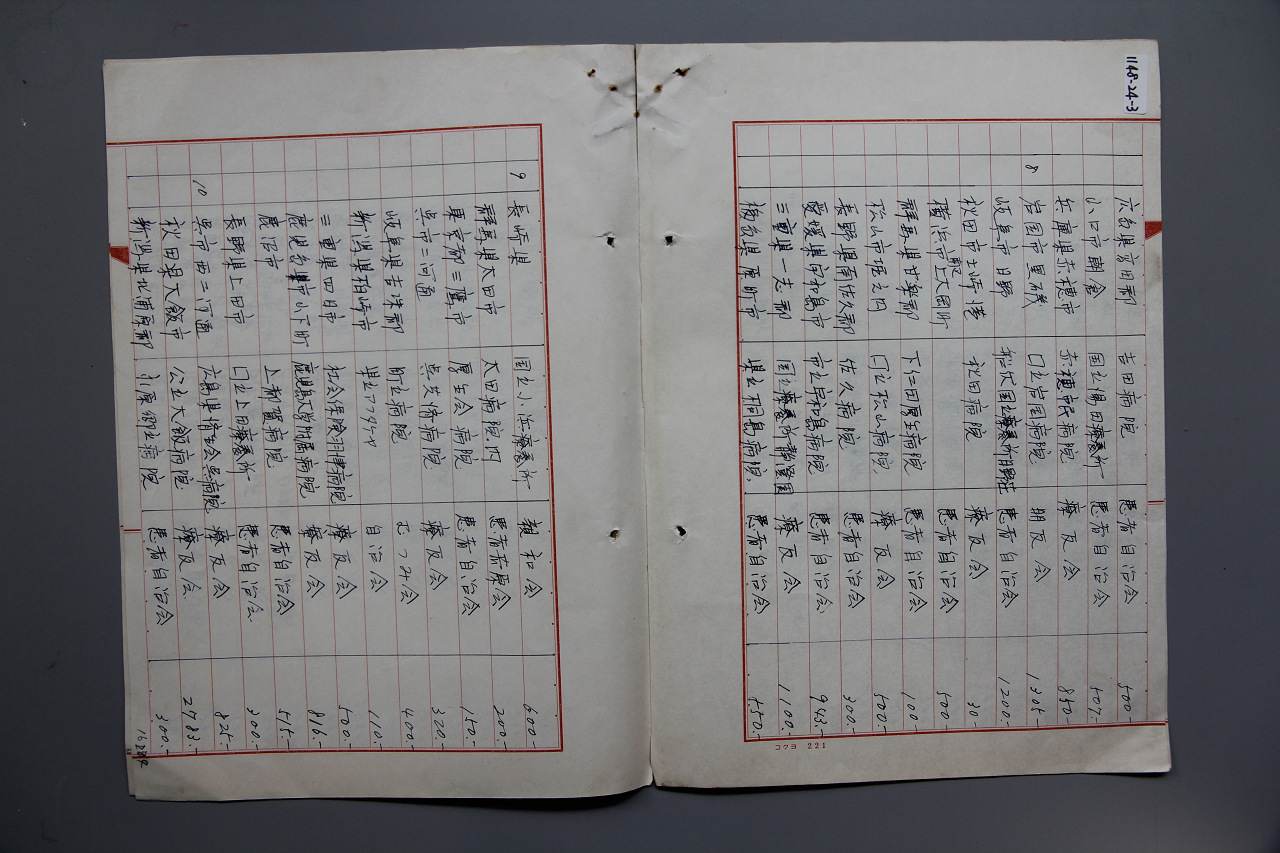 1148-24-3
広島県高田郡 吉田病院 患者自治会 500-
山口市朝倉 国立湯田療養所 患者自治会 501.-
兵庫県赤穂市 赤穂市民病院 療友会 850-
8 岩国市黒磯 国立岩国病院 朋友会 1305-
岐阜市日野 患者自治会 1200.-
秋田市土崎港 秋田病院 療友会 30.-
横浜市 上大岡町 患者自治会 500-
群馬県甘楽郡 下仁田厚生病院 患者自治会 100-
松山市堀之内 国立松山病院 療友会 500.-
長野県南佐久郡 佐久病院 患者自治会 300.-
愛媛県宇和島市 市立宇和島病院 患者自治会 943.-
三重県一志郡 国立療養所静澄園 療友会 1100.-
原町市 患者自治会 550.-
コクヨ 221
9 長崎県 国立小浜療養所 親和会 600-
群馬県太田市 太田病院内 200.-
東京都三鷹市 厚生会病院 患者自治会 150.-
呉市二河通 呉共済病院 療友会 320.-
岐阜県吉城郡 町立病院 400-
新潟県柏崎市 自治会 110.-
三重県四日市 社会保険羽津病院 療友会 500.-
鹿児島市山下町 鹿児島大学附属病院 療友会 816.-
鹿沼市 上都賀病院 患者自治会 515.-
長野県上田市 国立上田療養所 患者自治会 300.-
10 呉市西二河通 広島県済生会呉病院 療友会 825.-
秋田県大館市 公立大館病院 療友会 2783.-
新潟県北蒲原郡 病院 患者自治会 300.-